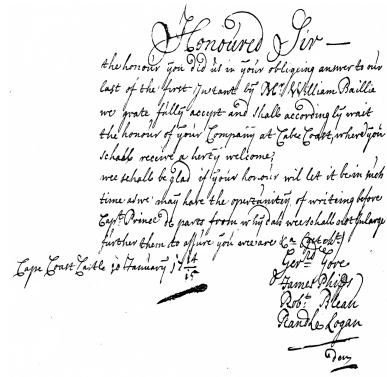 Honoured Sir —
the honour you did us in your obligeing answer to our
last of the first Instant by Mr. William Baillie
we grate fully accept and shall according ly wait
the honour of your Company at Cabe Coast, where you
schall receive a herty welcome;
wee schall be glad if your honour wil let it be in such
time as we may have the opertunitiy of writeing before
Capt. Prince de parts from whydah wee shall not Inlarge
further then to assure you wee are
Gerrd. Gore
James Phipps
Robt. Bleau
Randle Logan
Cape Coast Castle 10 January 17 14/15